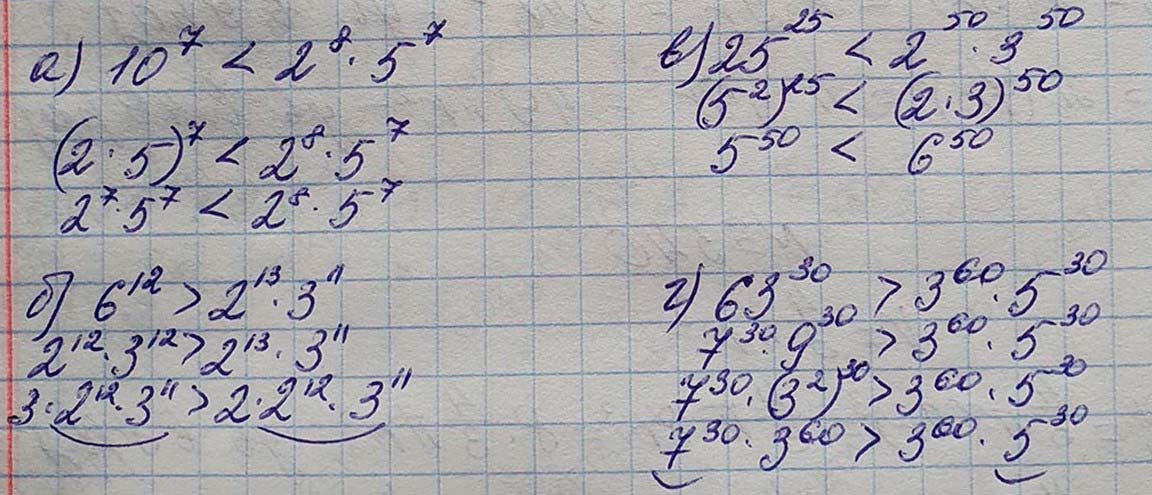 а) 10⁷ < 2⁸ · 5⁷
(2 · 5)⁷ < 2⁸ · 5⁷
2⁷ · 5⁷ < 2⁸ · 5⁷
б) 6¹² > 2¹³ · 3¹¹
2¹² · 3¹² > 2¹³ · 3¹¹
3 · 2¹² · 3¹¹ > 2 · 2¹² · 3¹¹
в) 25²⁵ < 2⁵⁰ · 3⁵⁰
(5²)²⁵ < (2 · 3)⁵⁰
5⁵⁰ < 6⁵⁰
г) 63³⁰ > 3⁶⁰ · 5³⁰
7³⁰ · 9³⁰ > 3⁶⁰ · 5³⁰
7³⁰ · (3²)³⁰ > 3⁶⁰ · 5³⁰
7³⁰ · 3⁶⁰ > 3⁶⁰ · 5³⁰